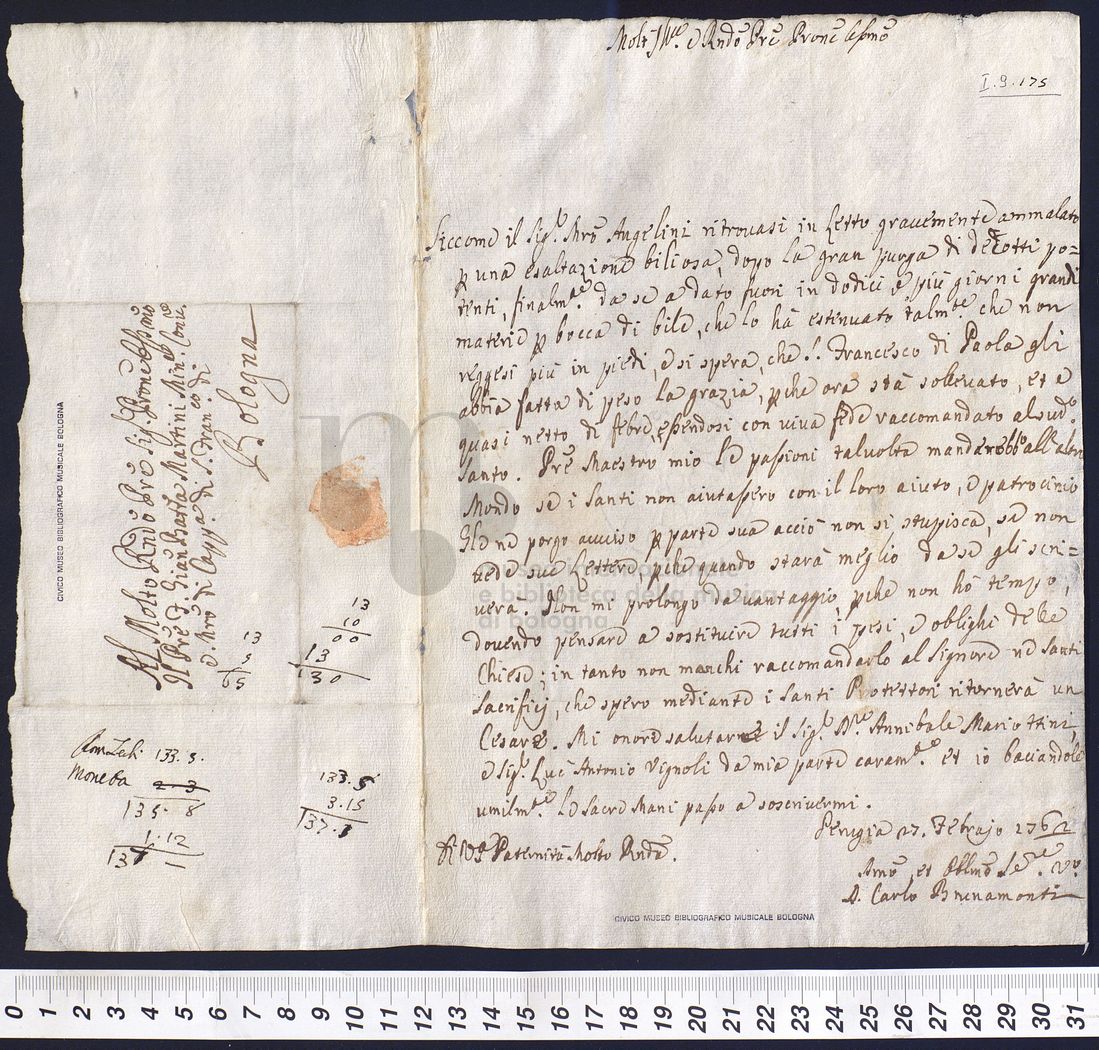 Molt' Ill.e e Rndo Pre Prone Colmo
I.9.175
Siccome il Sig.r Mro Angelini ritrovasi in Letto gravemente ammalato
p una esaltazione biliosa, dopo la gran purga di decotti po=
tenti, finalm.te da se a dato fuori in dodici e più giorni grandi
materie p bocca di bile, che lo hà estenuato talm.te che non
reggesi più in piedi, e si spera, che S. Francesco di Paola gli
abbia fatta di peso la grazia, pche ora stà sollevato, et è
quasi netto di febre, essendosi con viva fede raccomandato al sud.o
Santo. Pre Maestro mio le passioni talvolta manderebbo all'altro
Mondo se i Santi non aiutassero con il loro aiuto, e patrocinio
Gle ne porgo avviso p parte sua acciò non si stupisca, se non
vede sue Lettere, pche quando starà meglio da se gli scri=
verà. Non mi prolongo davantaggio, pche non hò tempo,
dovendo pensare a sostituire tutti i pesi, e oblighi delle
Chiese; in tanto non manchi raccomandarlo al Signore ne Santi
Sacrifici, che spero mediante i Santi Protettori ritornerà un
Cesare. Mi onore salutarne il Sig.r D.re Annibale Mariottini,
e Sig.r Luc' Antonio Vignoli da mia parte caram.te et io baciandole
umilm.te le sacre Mani passo a soscrivermi.
Perugia 27. Febrajo 1762
Di V.P. Paternità Molto Rnda.
Dmo et Obblmo Se.re V.o
D. Carlo Brunamonti
Al Molto Rndo Pre Sig.r Prone Colmo
Il Pre F. Gian Batta Martini Min.e Conv.
e Mro di Capp.a di S. Fran.co di
Bologna
13
5
65
13
10
00
13
130
Rom Zech: 133.3.
Moneta 2 3
135. 8
1.12
137 1
133.5
3.15
137.1
CIVICO MUSEO BIBLIOGRAFICO MUSICALE BOLOGNA
CIVICO MUSEO BIBLIOGRAFICO MUSICALE BOLOGNA
museo internazionale
e biblioteca della musica
di bologna
0 1 2 3 4 5 6 7 8 9 10 11 12 13 14 15 16 17 18 19 20 21 22 23 24 25 26 27 28 29 30 31